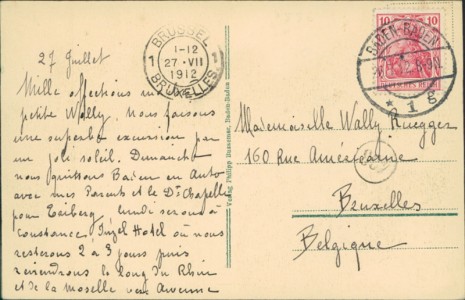 27 Juillet
Mille affections ma
petite Wally. Nous faisons
une superbe excursion par
un joli soleil. Dimanche
nous quittons Baden en Auto
avec mes Parents et le Dr Chapelle
pour Freiberg, lundi serons à
Constance, Insel Hotel où nous
resterons 2 à 3 jours puis
reviendrons le long du Rhin
et de la Moselle vers Avenne
BRÜSSEL
1 1-12 1
27 · VII
1912
BRUXELLES
Verlag Philipp Bussemer, Baden-Baden
10 10
BADEN-BADEN
* 1 g
Mademoiselle Wally Ruegger
160 Rue Américaine
Bruxelles
Belgique